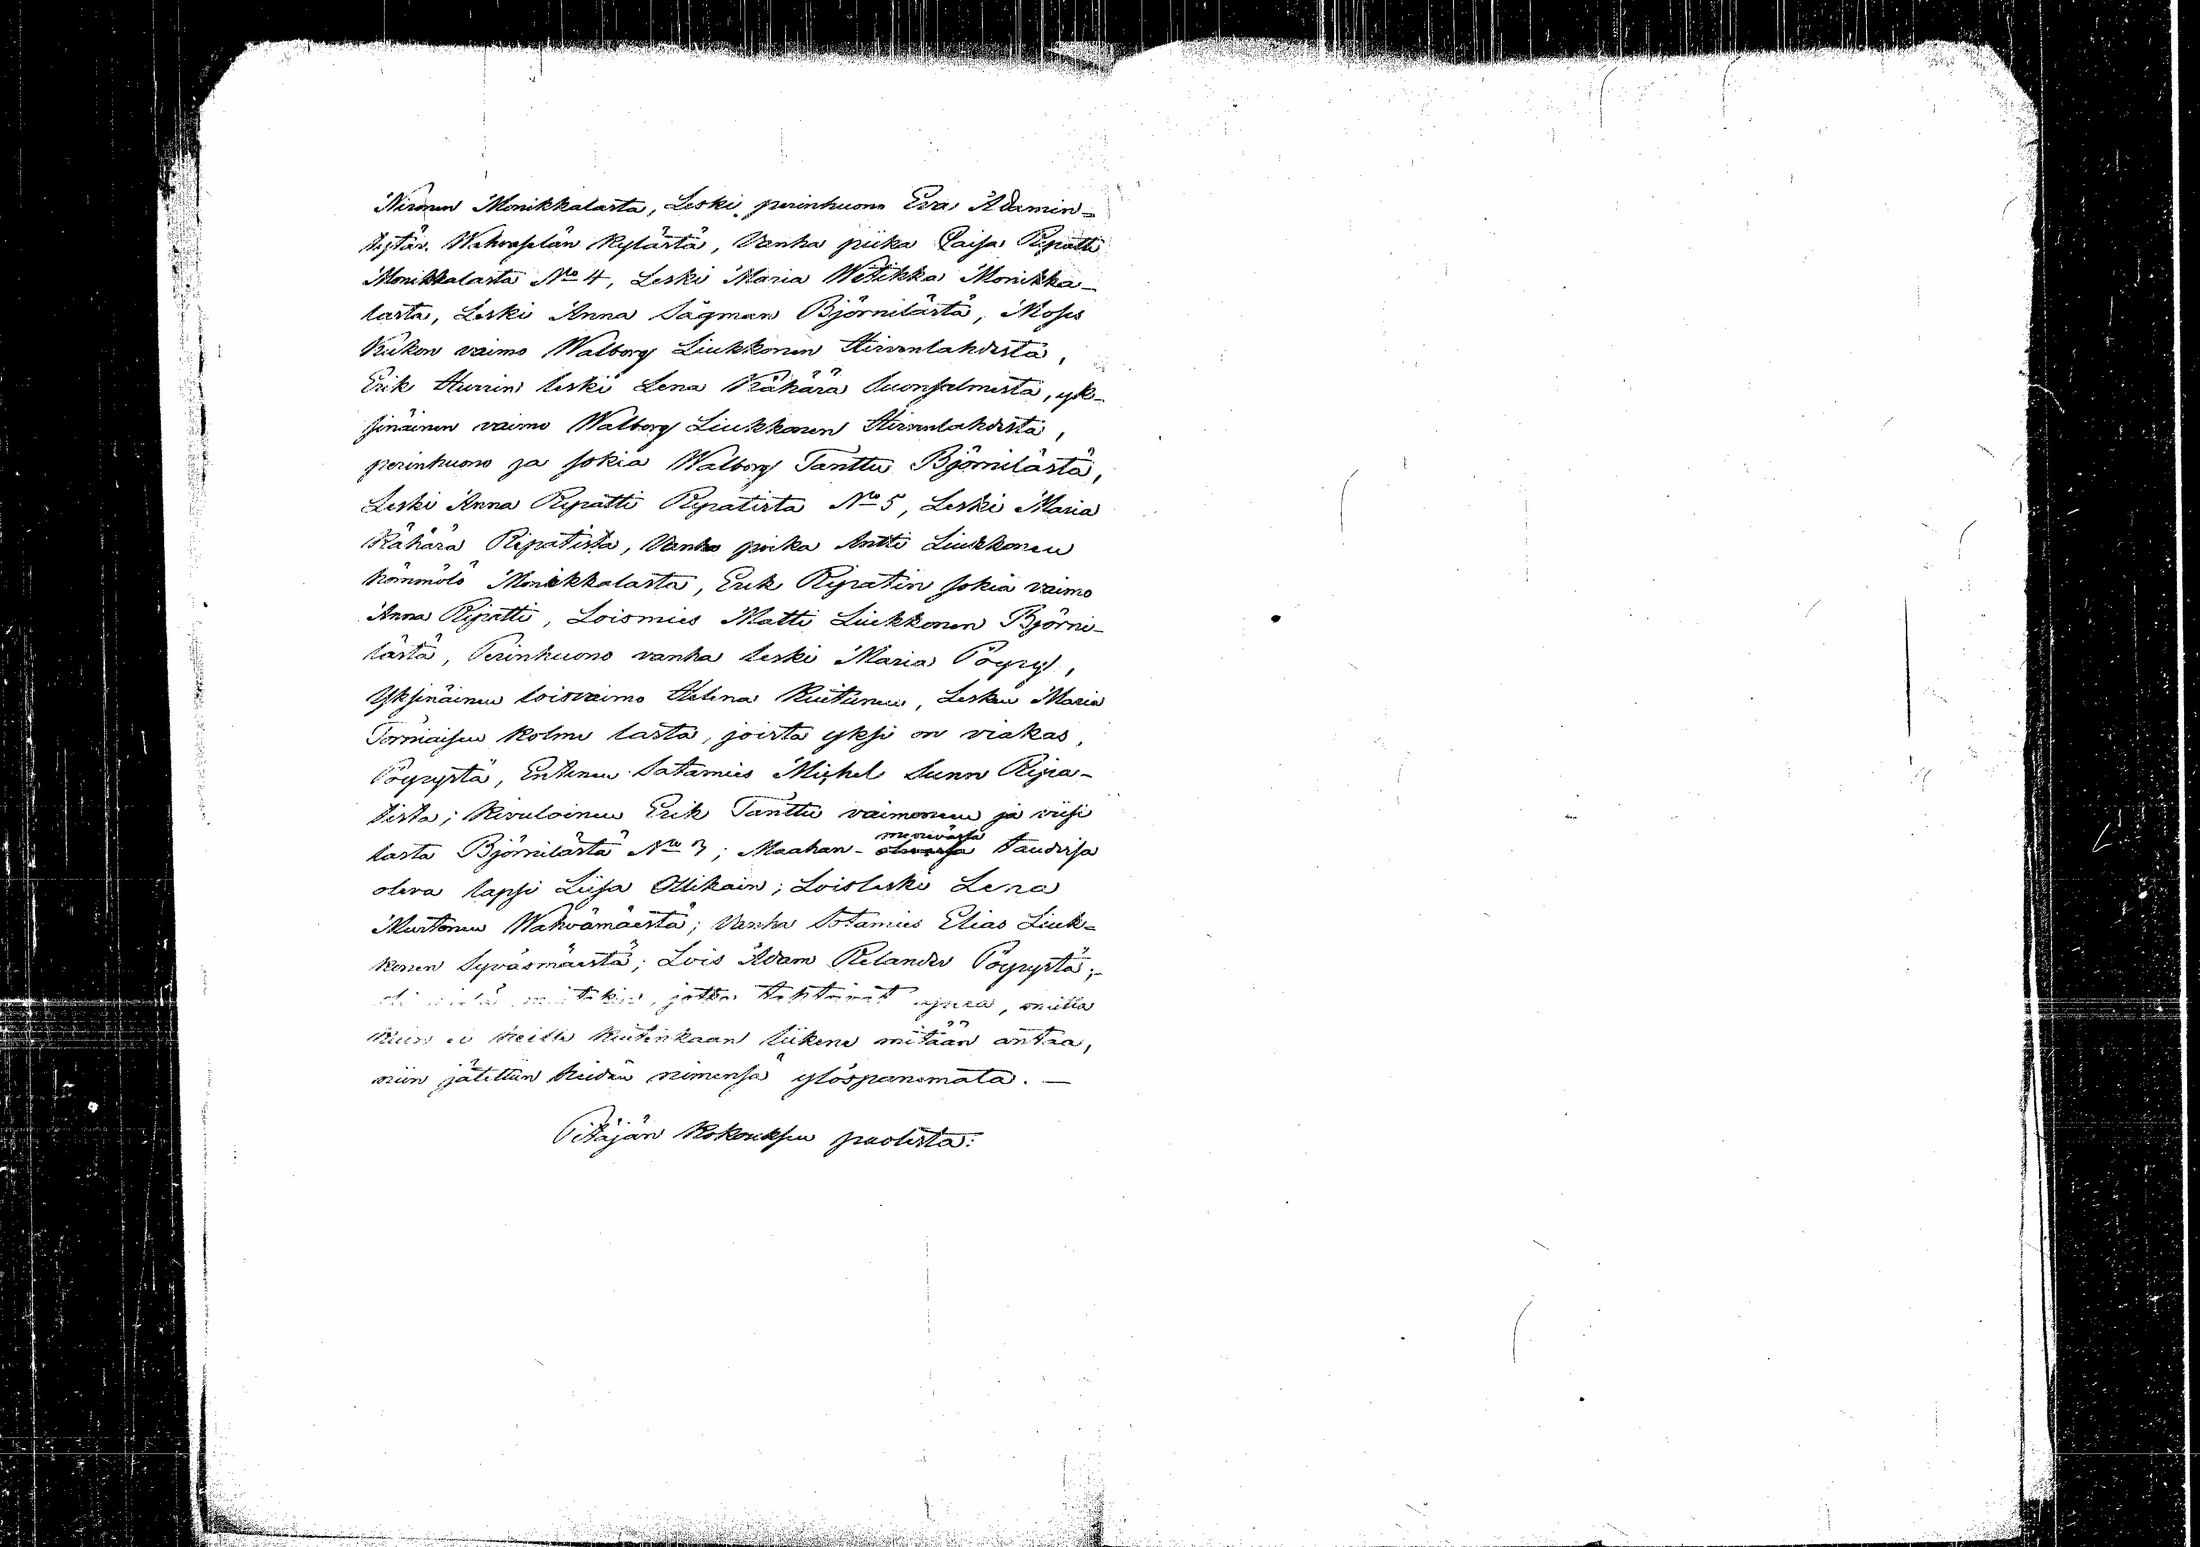 Nironen Monikkalasta, Leski perinhuono Eva Adamin-
tytär Wahvaselän kylästä, Vanha piika Caisa Ripatti
Monikkalasta No 4, Leski Maria Wetikka Monikka-
lasta, Leski Anna Sägman Björnilästä, Moses
Kukon vaimo Walborg Liukkonen Hirvenlahdesta,
Erik Hurrin leski Lena Kähärä Suonsalmesta, yk-
sinäinen vaimo Walborg Liukkonen Hirvenlahdesta,
perinhuono ja sokia Walborg Tanttu Björnilästä,
Leski Anna Ripatti Ripatista No 5, Leski Maria
Kähärä Ripatista, Vanha poika Antti Liukkonen
Kömmölö Monikkalasta, Erik Ripatin sokia vaimo
Anna Ripatti, Loismies Matti Liukkonen Björni-
lästä, Perinhuono vanha leski Maria Pöyry,
Yksinäinen loisvaimo Helena Kuitunen, Lesken Maria
Tormaisen kolme lasta, joista yksi on viakas,
Pöyrystä, Entinen Satamies Michel Sunn Ripa-
tista; Kivuloinen Erik Tanttu vaimonen ja viisi
lasta Björnilästä No 3; Maahan- menevässä taudissa
oleva lapsi Liisa Ollikain; Loisleski Lena
Murtonen Wahvamäestä; Vanha Sotamies Elias Liuk-
konen Syväsmäestä; Lois Adam Relander Pöyrystä;
jotka apua, mutta
kuin ei heille kuitenkaan liikene mitään antaa,
niin jätettiin heidän nimensä ylöspanemata. —
Pitäjän Kokouksen puolesta: